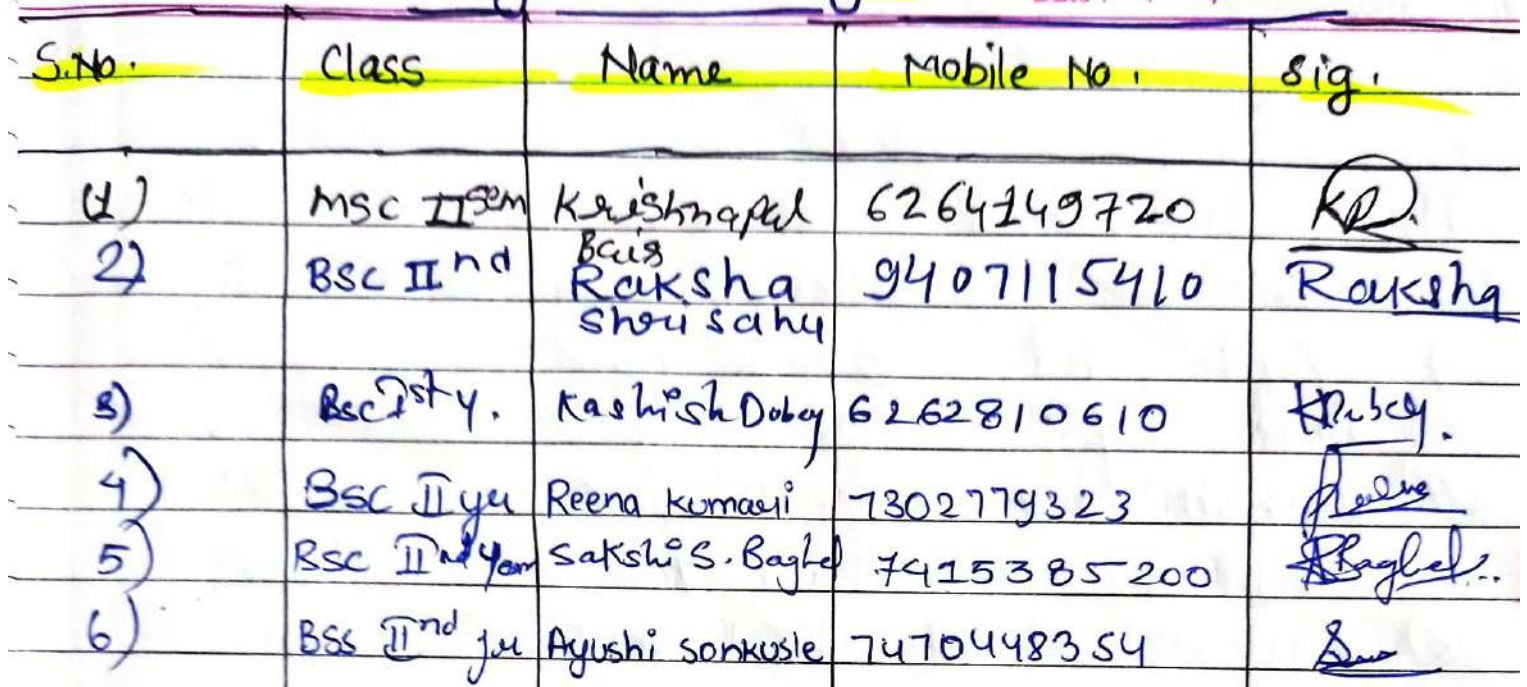 S.No. Class Name Mobile No. Sig.
(1) MSC II sem Krishnapal 6264149720 KR.
Bais
2) BSC II nd Raksha 9407115410 Raksha
Shri sahu
3) Bsc Ist y. Kashish Dubey 6262810610 KDubey.
4) BSC II yr Reena Kumari 7302779323
5) BSC IInd Year Sakshi S. Baghel 7415385200 SBaghel..
6) BSS IInd yr Ayushi Sonkusle 7470448354